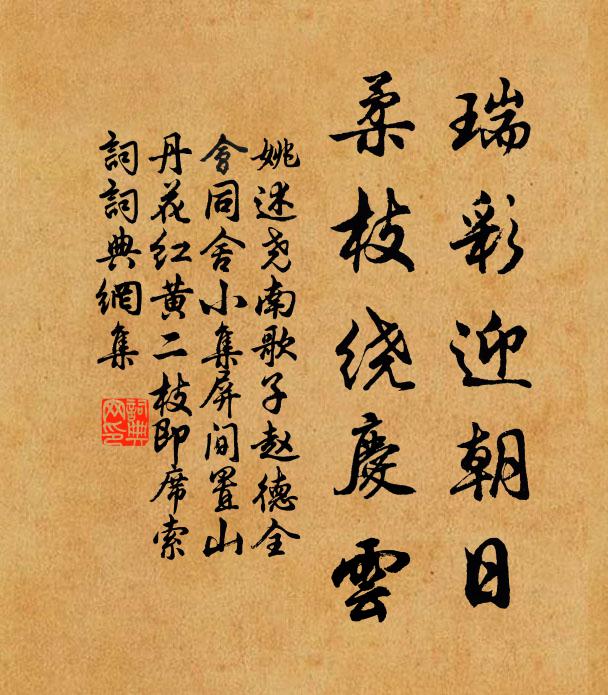 瑞彩迎朝日
柔枝绕慶雲
姚述尧南歌子赵德全
會同舍小集屏间置山
丹花红黄二枝即席索
詞詞典網集
詞典
网印